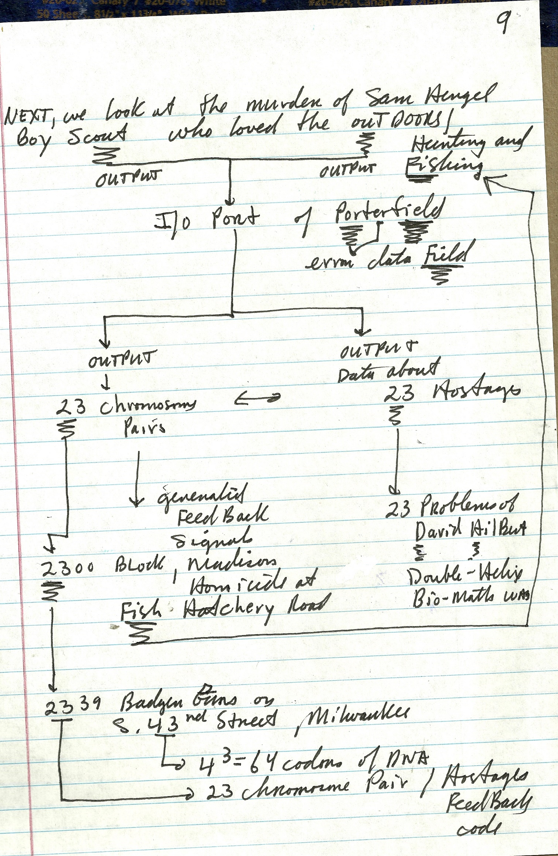 9
NEXT, we look at the murder of Sam Hengel
Boy Scout who loved the OUTDOORS/
Hunting and
Fishing
OUTPUT OUTPUT
I/O Port of Porterfield
error data Field
OUTPUT OUTPUT
Data about
23 Chromosome Pairs ↔ 23 Hostages
generated
FeedBack
Signals
23 Problems of
David Hilbert
2300 Block, Madison
Homicide at
Fish Hatchery Road
Double-Helix
Bio-Math
2339 Badger Guns on
S. 43rd Street, Milwaukee
4³=64 codons of DNA
23 chromosome Pair / Hostages
FeedBack
code